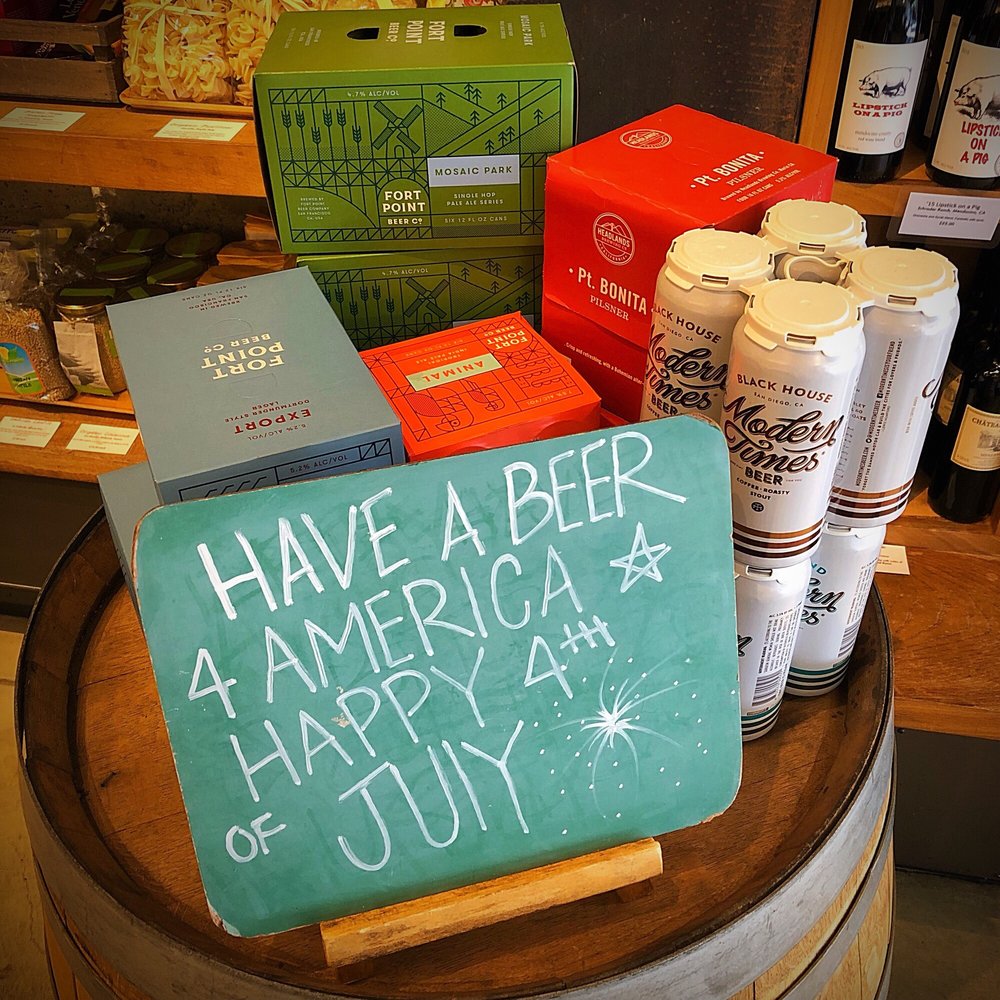 FORT
POINT
BEER CO
MOSAIC
PARK
4.7% ALC/VOL
MOSAIC PARK
SINGLE HOP
PALE ALE SERIES
FORT
POINT
BEER CO
BREWED BY
FORT POINT
BEER COMPANY
SAN FRANCISCO
CA, USA
SIX 12 FL OZ CANS
4.7% ALC/VOL
Pt. BONITA
PILSNER
HEADLANDS
Pt. BONITA
PILSNER
LIPSTICK
ON A PIG
LIPSTICK
ON A PIG
'15 Lipstick on a Pig
FORT
POINT
BEER CO
EXPORT
DORTMUNDER STYLE
LAGER
5.2% ALC/VOL
5.2% ALC/VOL
FORT
POINT
BEER CO
ANIMAL
BLACK HOUSE
SAN DIEGO, CA
Modern
Times
BEER
BLACK HOUSE
SAN DIEGO, CA
Modern
Times
BEER
COFFEE · ROASTY
STOUT
HAVE A BEER
4 AMERICA
HAPPY 4TH
OF JUlY